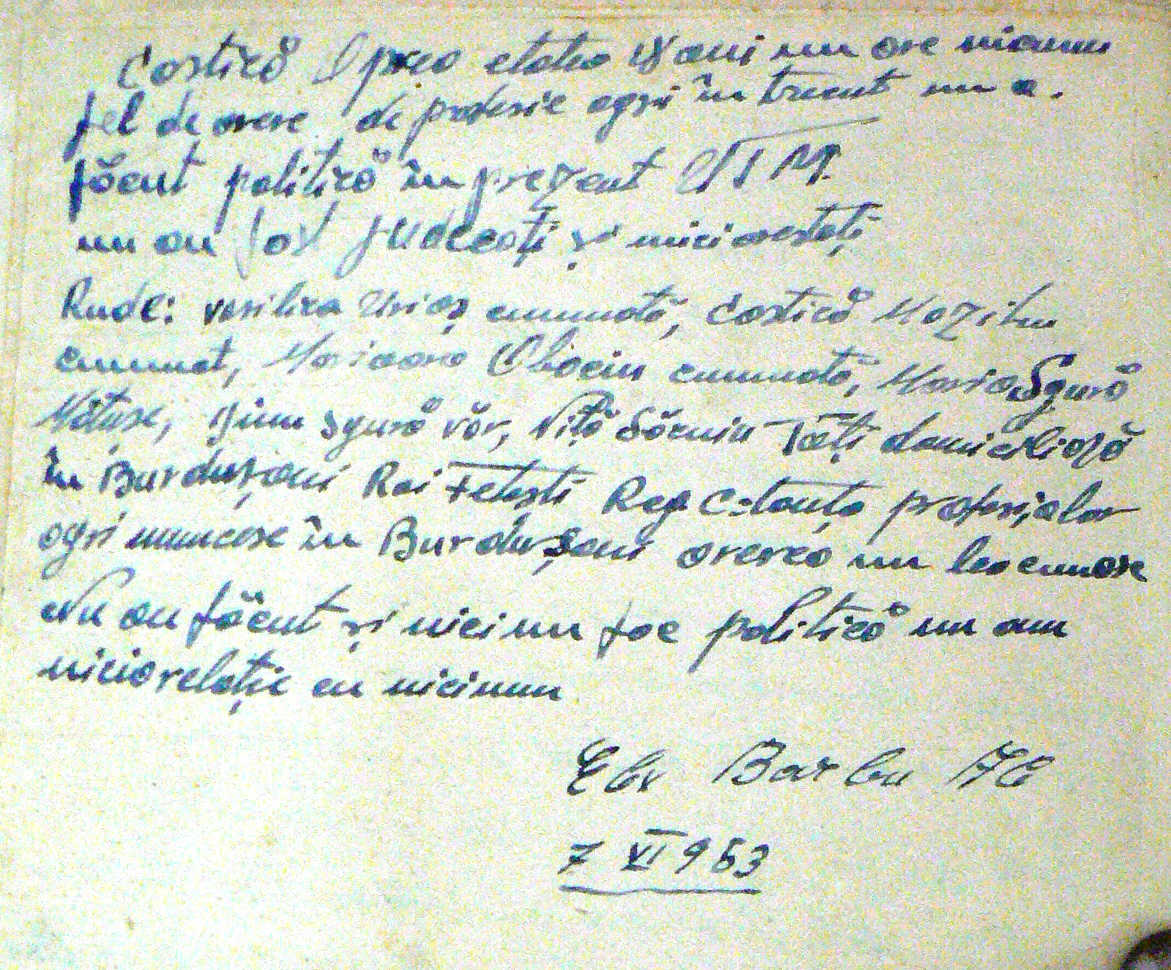 Costică Oprea etatea 18 ani nu are niciun
fel de avere de profesie agri în trecut nu a.
făcut politică în prezent UTM.
nu au fost judecați și nici arestați
Rude: Vasilica Uriaș cumnată, Costică Mazilu
cumnat, Marioara cumnată, Maria Sgură
Mătușe, Dinu Sgură văr, Niță Tăți domiciliază
în Burdușani Rai Fetești Reg C-tanța profesia lor
agri muncesc în Burdușani averea nu leo cunosc
Nu au făcut și nici nu fac politică nu am
nicio relație cu niciunu
Elv Barbu
7 VI 953